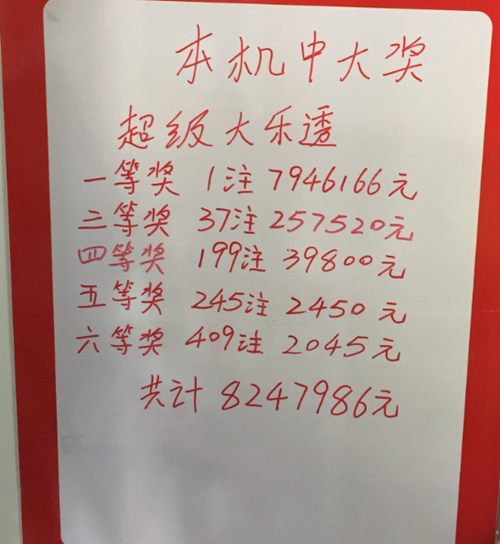 本机中大奖
超级大乐透
一等奖 1注 7946166元
三等奖 37注 257520元
四等奖 199注 39800元
五等奖 245注 2450元
六等奖 409注 2045元
共计 8247986元